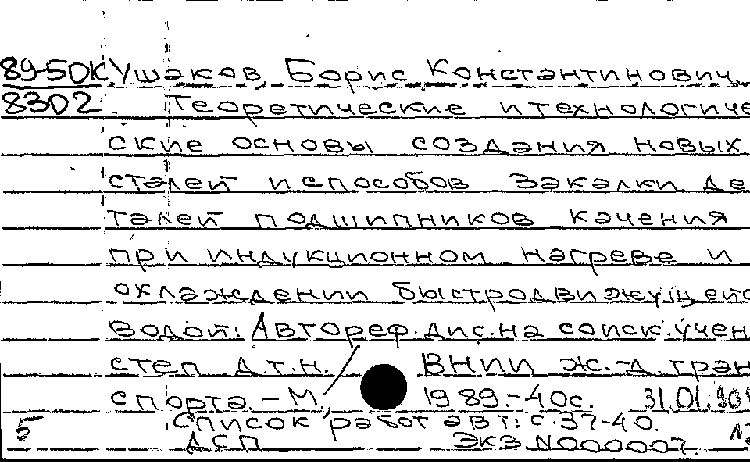 89-5DК Ушаков, Борис Константинович.
8302 Теоретические и технологиче
ские основы создания новых
сталей и способов закалки де
талей подшипников качения
при индукционном нагреве и
охлаждении быстродвижущейс
водой: Автореф. дис. на соиск. учен
степ д.т.н. ВНИИ ж.-д. тран
спорта. - М., 1989. - 40с. 31.01.90
5 Список работ авт: с. 37-40.
ДСП Экз N000007.